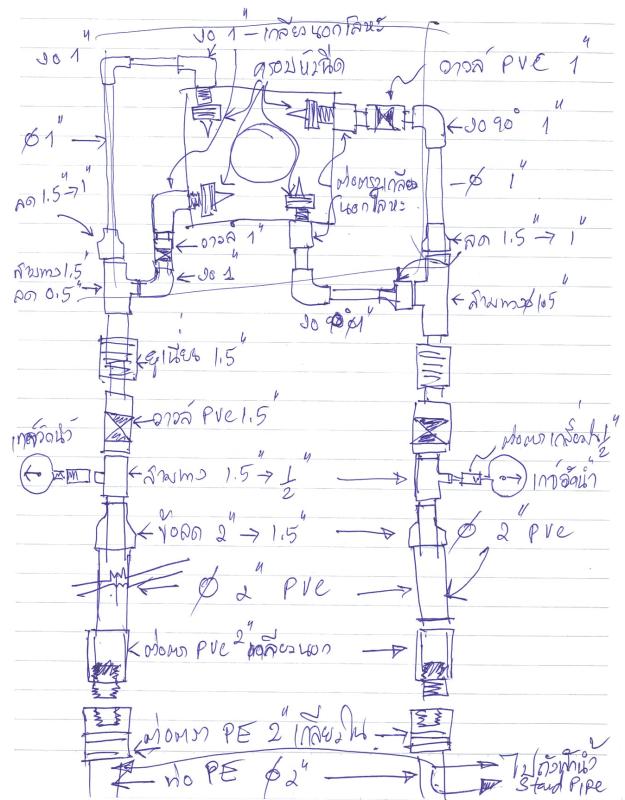 งอ 1"
งอ 1"-เกลียวนอกโลหะ
ครอบหัวฉีด
วาวล์ PVC 1"
Ø 1"
งอ 90° 1"
ลด 1.5"→1"
ต่อตรงเกลียว
นอกโลหะ
Ø 1"
วาวล์ 1"
ลด 1.5"→1"
งอ 1"
สามทาง 1.5"
ลด 0.5"
งอ 90° Ø1"
สามทาง Ø1.5"
ยูเนี่ยน 1.5"
วาวล์ PVC 1.5"
เกจ์วัดน้ำ
สามทาง 1.5"→ 1/2"
1/2"
เกจ์วัดน้ำ
ข้อลด 2"→ 1.5"
Ø 2" PVC
Ø 2" PVC
ต่อตรง PVC 2" เกลียวนอก
ต่อตรง PE 2" เกลียวใน
ท่อ PE Ø 2"
ไปถังน้ำ
Stand Pipe